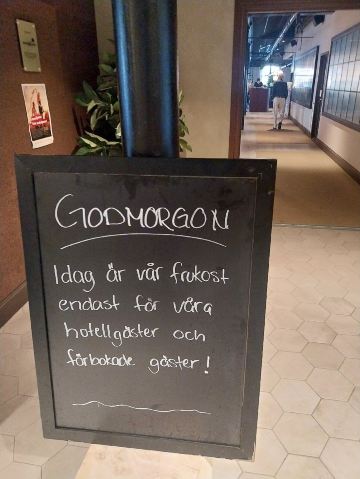 GODMORGON
Idag är vår frukost
endast för våra
hotellgäster och
förbokade gäster!